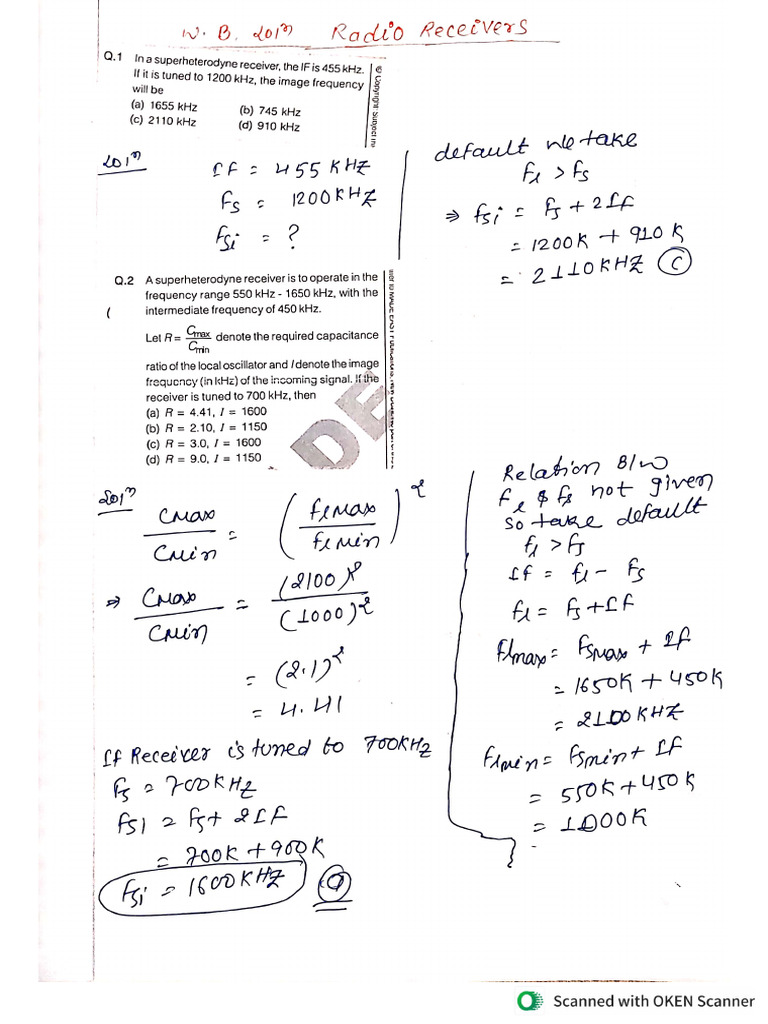 W.B. 2017 Radio Receivers
Q.1 In a superheterodyne receiver, the IF is 455 kHz.
If it is tuned to 1200 kHz, the image frequency
will be
(a) 1655 kHz (b) 745 kHz
(c) 2110 kHz (d) 910 kHz
© Copyright Subject m
Sol^n
IF = 455 KHZ
fs = 1200KHZ
fsi = ?
default we take
fl > fs
⇒ fsi = fs + 2If
= 1200K + 910 K
= 2110KHZ (C)
Q.2 A superheterodyne receiver is to operate in the
frequency range 550 kHz - 1650 kHz, with the
intermediate frequency of 450 kHz.
Let R = Cmax/Cmin denote the required capacitance
ratio of the local oscillator and I denote the image
frequency (in kHz) of the incoming signal. If the
receiver is tuned to 700 kHz, then
(a) R = 4.41, I = 1600
(b) R = 2.10, I = 1150
(c) R = 3.0, I = 1600
(d) R = 9.0, I = 1150
DE
Sol^n
Cmax/Cmin = (flmax/flmin)^2
⇒ Cmax/Cmin = (2100)^2/(1000)^2
= (2.1)^2
= 4.41
If Receiver is tuned to 700KHZ
fs = 700KHZ
fsi = fs + 2If
= 700K + 900K
fsi = 1600KHZ (a)
Relation B/w
fl & fs not given
so take default
fl > fs
If = fl - fs
fl = fs + If
flmax = fsmax + If
= 1650K + 450K
= 2100KHZ
flmin = fsmin + If
= 550K + 450K
= 1000K
Scanned with OKEN Scanner